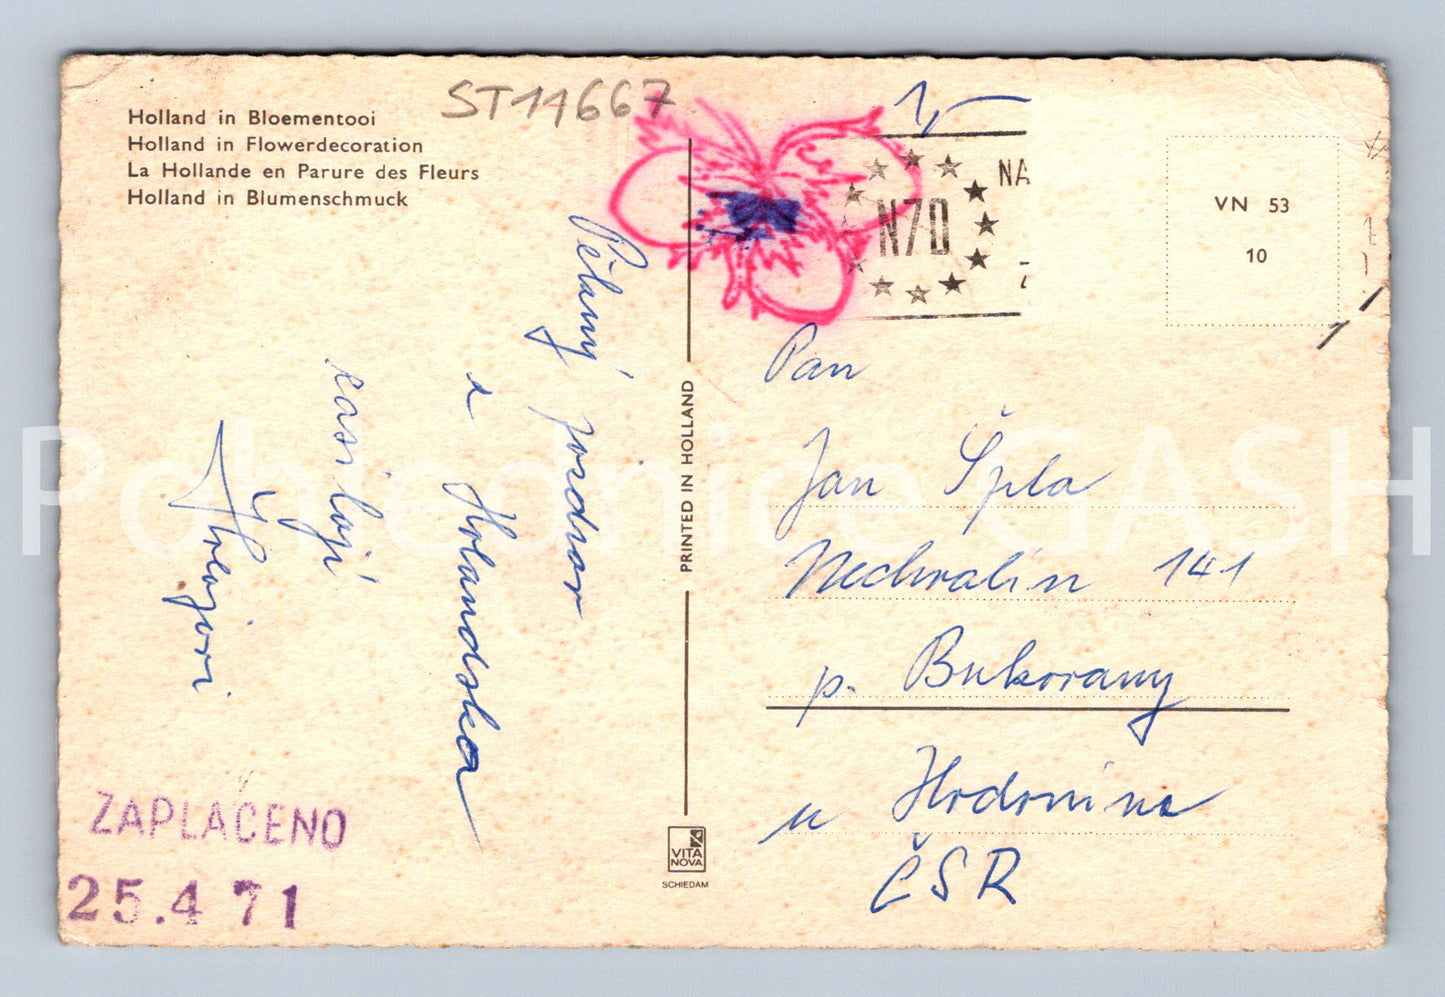 Holland in Bloementooi
Holland in Flowerdecoration
La Hollande en Parure des Fleurs
Holland in Blumenschmuck
ST11667
1,–
N70
NA
VN 53
10
Pěkný pozdrav
z Holandska
zasílají
ZAPLACENO
25.4 71
PRINTED IN HOLLAND
VITA
NOVA
SCHIEDAM
Pan
Jan Špla
Nechvalín 141
p. Bukovany
u Hodonína
ČSR
Pohlednice GASH